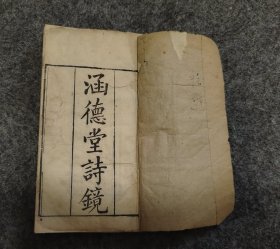 涵德堂詩鏡